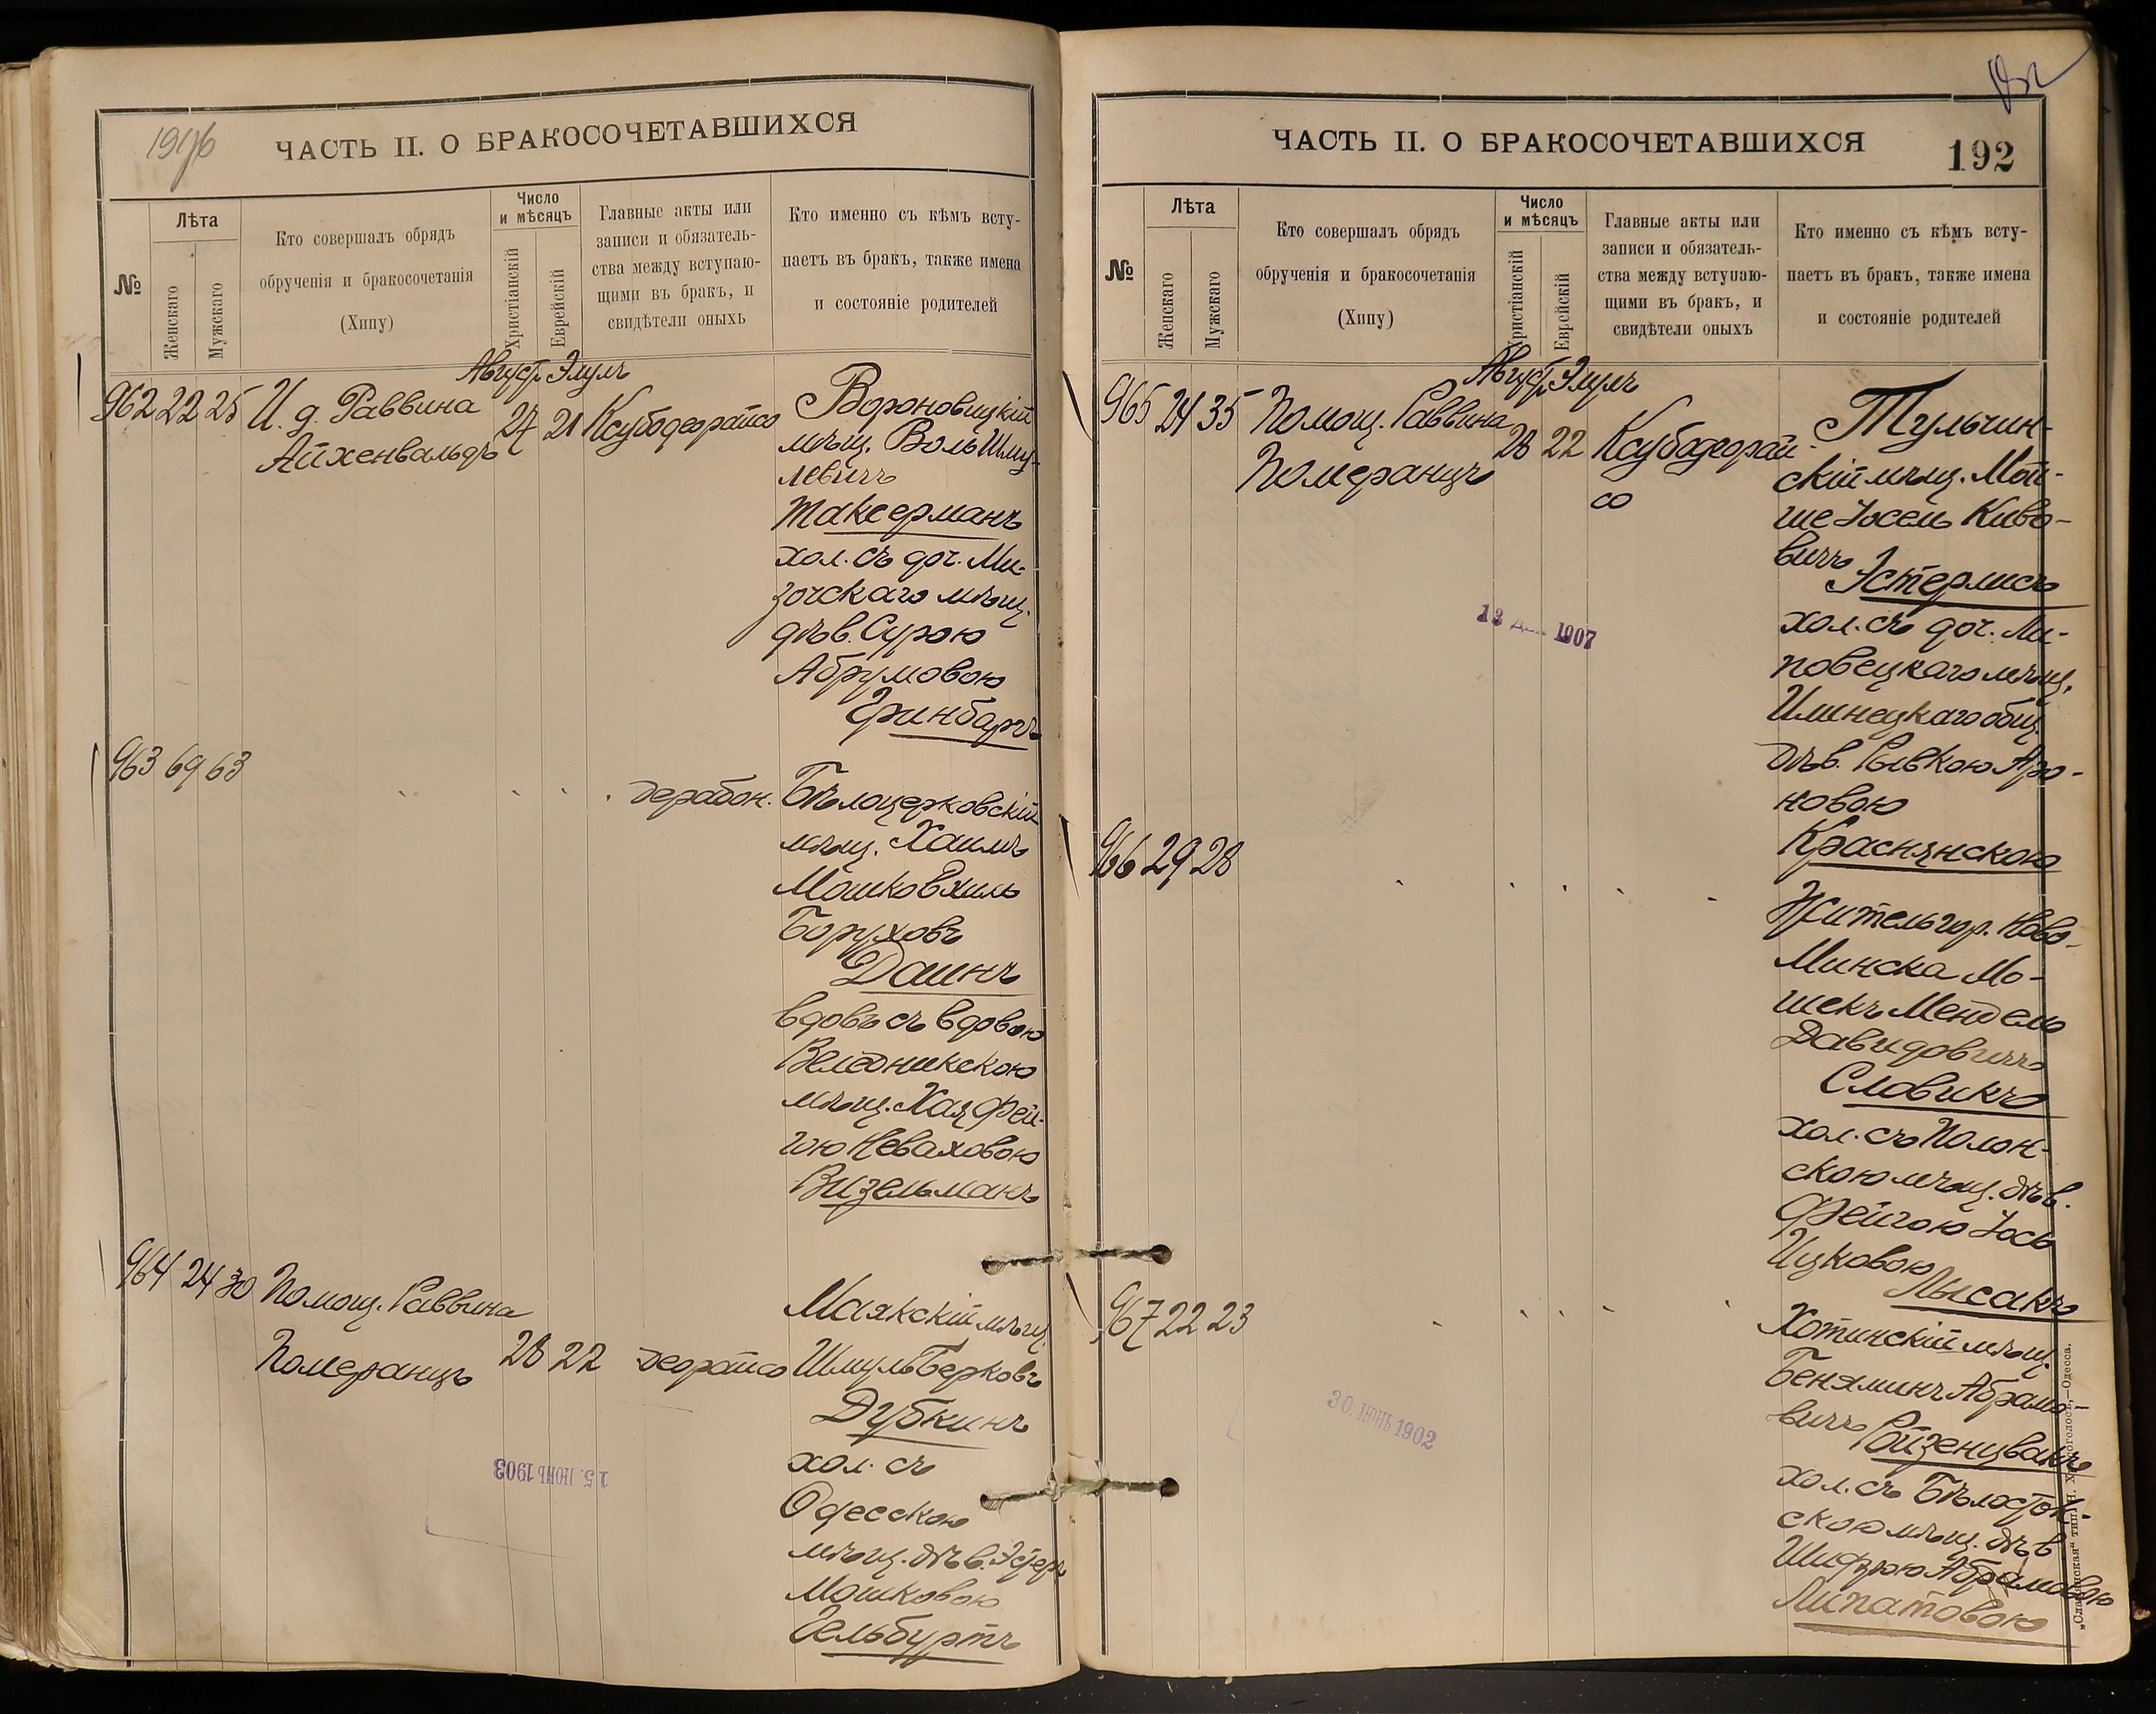 ЧАСТЬ II. О БРАКОСОЧЕТАВШИХСЯ
№
Лѣта
Женскаго
Мужскаго
Кто совершалъ обрядъ
обрученія и бракосочетанія
(Хипу)
Число
и мѣсяцъ
Христіанскій
Еврейскій
Главные акты или
записи и обязатель-
ства между вступаю-
щими въ бракъ, и
свидѣтели оныхъ
Кто именно съ кѣмъ всту-
паетъ въ бракъ, также имена
и состояніе родителей
Август. Элулъ
962 22 25 И. д. Раввина
Айхенвальдъ
27 21 Ксубодеорайсо
Вороновицкій
мѣщ. Воль Шму-
левичъ
Таксерманъ
хол. съ доч. Ми-
зочскаго мѣщ.
дѣв. Сурою
Абрумовою
Гринбаргъ
963 69 63
дерабон.
Бѣлоцерковскій
мѣщ. Хаимъ
Мошков Хиль
Боруховъ
Даинъ
вдовъ съ вдовою
Веледникскою
мѣщ. Хая Фей-
гою Неваховою
Визельманъ
964 24 30 Помощ. Раввина
Померанцъ 28 22 деорайсо
Маякскій мѣщ.
Шмуль Берковъ
Дубкинъ
хол. съ
Одесскою
мѣщ. дѣв. Эстеръ
Мошковою
Гельбуртъ
15. ІЮНЬ 1903
ЧАСТЬ II. О БРАКОСОЧЕТАВШИХСЯ
192
№
Лѣта
Женскаго
Мужскаго
Кто совершалъ обрядъ
обрученія и бракосочетанія
(Хипу)
Число
и мѣсяцъ
Христіанскій
Еврейскій
Главные акты или
записи и обязатель-
ства между вступаю-
щими въ бракъ, и
свидѣтели оныхъ
Кто именно съ кѣмъ всту-
паетъ въ бракъ, также имена
и состояніе родителей
Август. Элулъ
965 24 35 Помощ. Раввина
Померанцъ
28 22 Ксубодеорай-
со
Тульчин-
скій мѣщ. Мой-
ше Іосель Киво-
вичъ
Эстерлисъ
хол. съ доч. Ли-
повецкаго мѣщ.
Илинецкаго общ.
дѣв. Рывкою Аро-
новою
Краснянскою
13 1907
966 29 28
Житель гор. Ново-
Минска Мо-
шекъ Мендель
Давидовичъ
Словикъ
хол. съ Полон-
скою мѣщ. дѣв.
Фейгою Іось
Ицковою
Лысакъ
967 22 23
Хотинскій мѣщ.
Беняминъ Абрамо-
вичъ
Ройзенцвакъ
хол. съ Бѣлосток-
скою мѣщ. дѣв
Шифрою Абрамовою
Липатовою
30. ІЮНЬ 1902